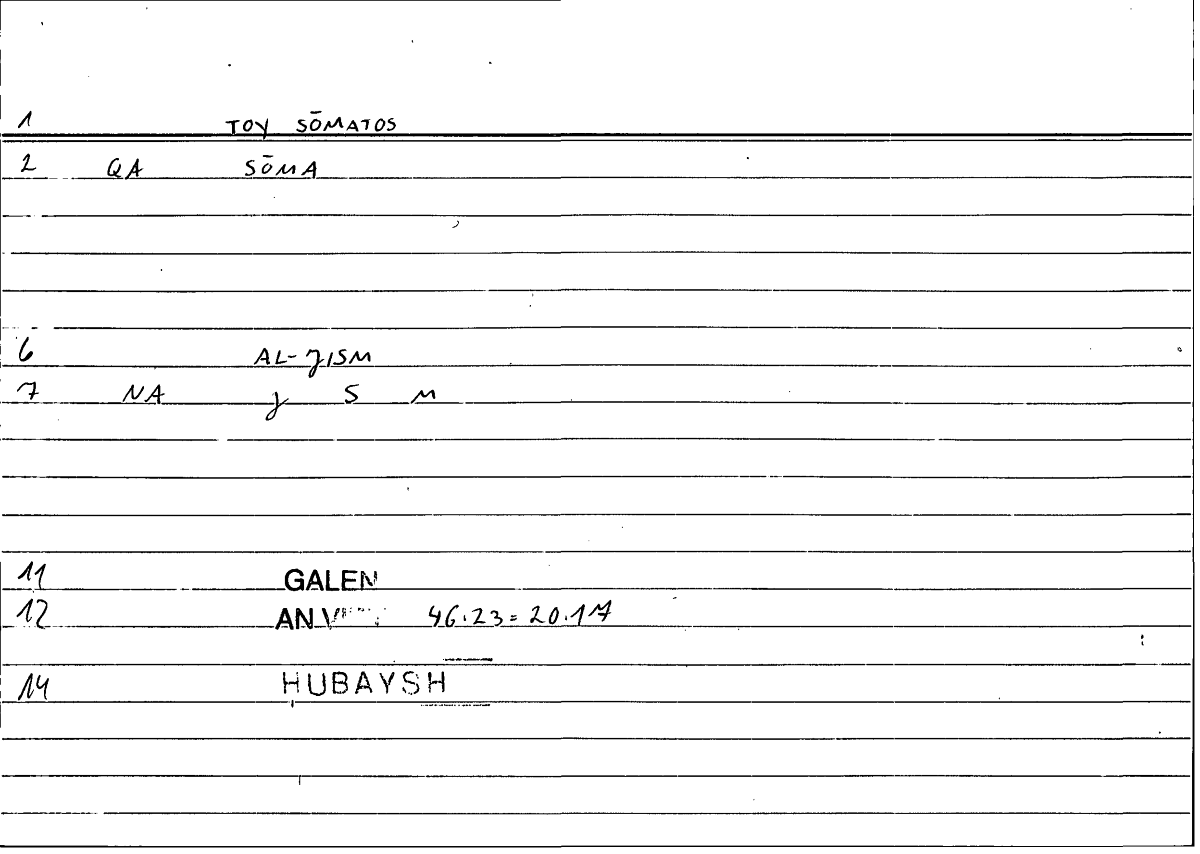 1 TOY SŌMATOS
2 QA SŌMA
6 AL-JISM
7 NA J S M
11 GALEN
12 46.23=20.17
14 HUBAYSH